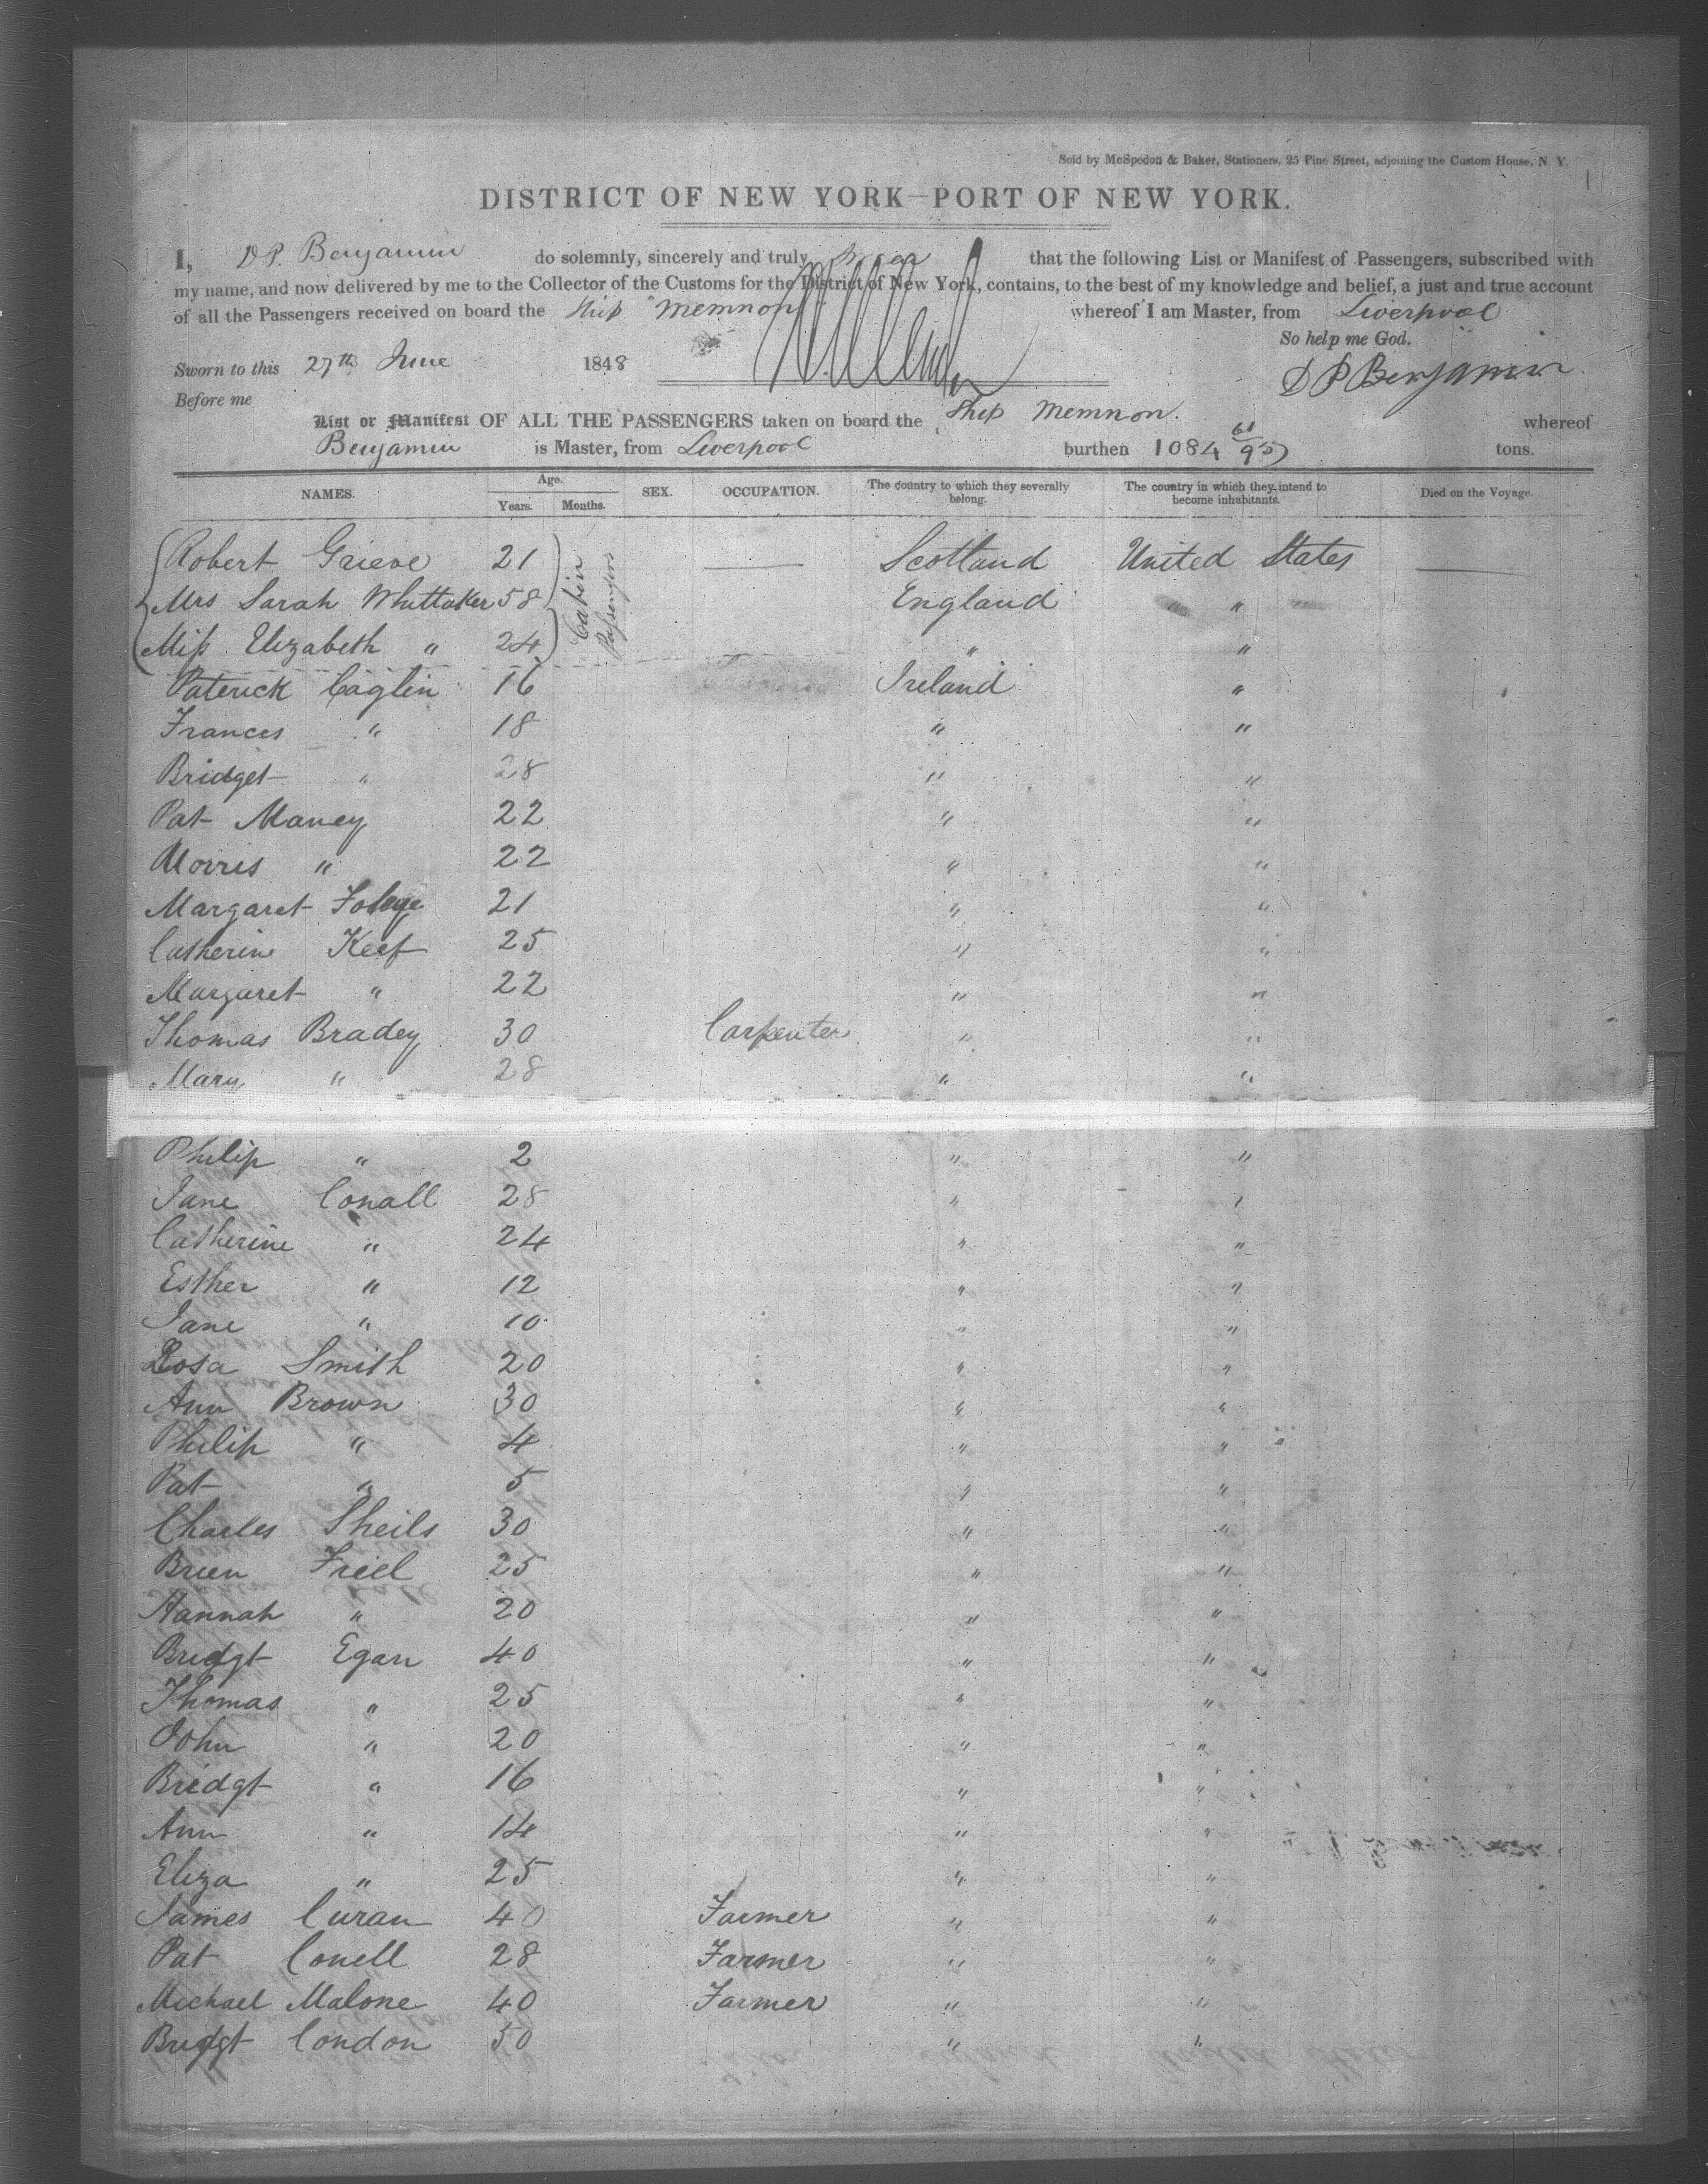 Sold by McSpedon & Baker, Stationers, 25 Pine Street, adjoining the Custom House, N. Y.
DISTRICT OF NEW YORK—PORT OF NEW YORK.
I, D P. Benjamin do solemnly, sincerely and truly swear that the following List or Manifest of Passengers, subscribed with
my name, and now delivered by me to the Collector of the Customs for the District of New York, contains, to the best of my knowledge and belief, a just and true account
of all the Passengers received on board the Ship "Memnon" whereof I am Master, from Liverpool
So help me God.
Sworn to this 27th June 1848
D P Benjamin
Before me
List or Manifest OF ALL THE PASSENGERS taken on board the Ship Memnon. whereof
Benjamin is Master, from Liverpool burthen 1084 61/95 tons.
NAMES. Age. Years. Months. SEX. OCCUPATION. The country to which they severally belong. The country in which they intend to become inhabitants. Died on the Voyage.
Cabin Passengers
Robert Grieve 21 — Scotland United States —
Mrs Sarah Whittaker 58 England "
Miss Elizabeth " 24 " "
Paterick Caglin 16 Ireland "
Frances " 18 " "
Bridget " 28 " "
Pat Maney 22 " "
Morris " 22 " "
Margaret Foleye 21 " "
Catherin Keef 25 " "
Margaret " 22 " "
Thomas Bradey 30 Carpenter " "
Mary " 28 " "
Philip " 2 " "
Jane Conall 28 " "
Catherine " 24 " "
Esther " 12 " "
Jane " 10 " "
Rosa Smith 20 " "
Ann Brown 30 " "
Philip " 4 " "
Pat " 5 " "
Charles Sheils 30 " "
Brien Freel 25 " "
Hannah " 20 " "
Bridgt Egan 40 " "
Thomas " 25 " "
John " 20 " "
Bridgt " 16 " "
Ann " 14 " "
Eliza " 25 " "
James Curan 40 Farmer " "
Pat Conell 28 Farmer " "
Michael Malone 40 Farmer " "
Bridgt Condon 50 " "